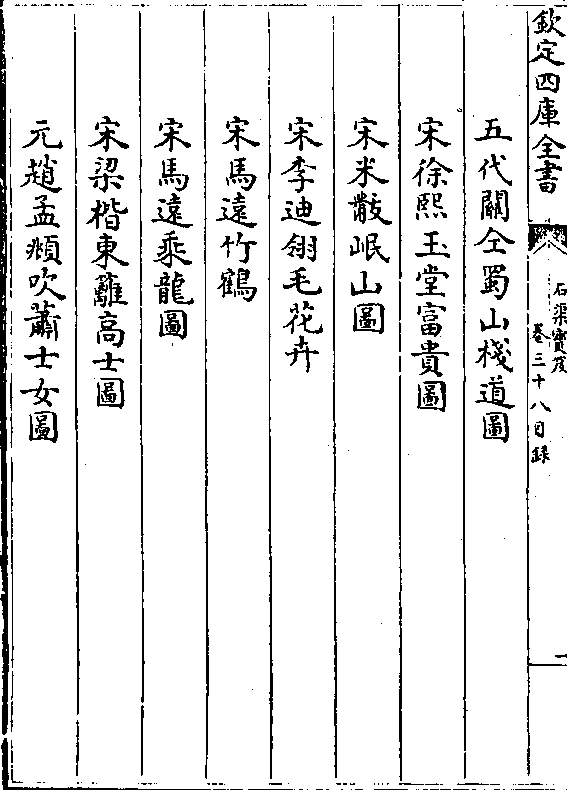 欽定四庫全書
石渠寶笈
卷三十八目錄
一
五代關仝蜀山棧道圖
宋徐熙玉堂富貴圖
宋米黻岷山圖
宋李迪翎毛花卉
宋馬遠竹鶴
宋馬遠乘龍圖
宋梁楷東籬高士圖
元趙孟頫吹簫士女圖